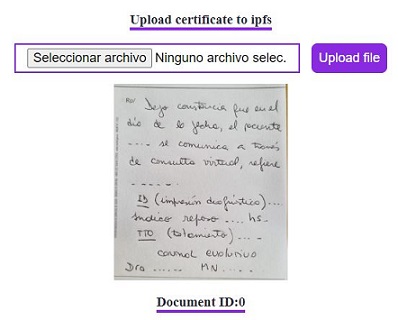 Upload certificate to ipfs
Seleccionar archivo Ninguno archivo selec. Upload file
Rp/ Dejo constancia que en el
día de la fecha, el paciente
.... se comunica a través
de consulta virtual, refiere
......
ID (impresión diagnóstica)....
Indico reposo .... hs.
TTO (tratamiento)....
control evolutivo
Dra ...... MN.....
Document ID:0